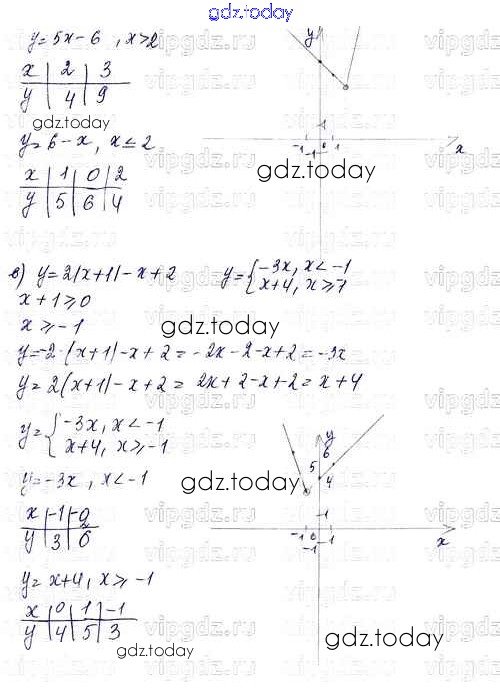 gdz.today
y=5x-6 , x>2
x | 2 | 3
y | 4 | 9
gdz.today
y=6-x, x≤2
x | 1 | 0 | 2
y | 5 | 6 | 4
y
1
-1 0 1
-1
x
gdz.today
в) y=2|x+1|-x+2
y={-3x, x<-1
x+4, x≥-1
x+1≥0
x≥-1
gdz.today
y=-2·(x+1)-x+2=-2x-2-x+2=-3x
y=2(x+1)-x+2=2x+2-x+2=x+4
y={-3x, x<-1
x+4, x≥-1
y=-3x, x<-1
x | -1 | -2
y | 3 | 6
y
6
5
4
1
-1 0 1
-1
x
gdz.today
y=x+4, x≥-1
x | 0 | 1 | -1
y | 4 | 5 | 3
gdz.today
gdz.today
vipgdz.ru